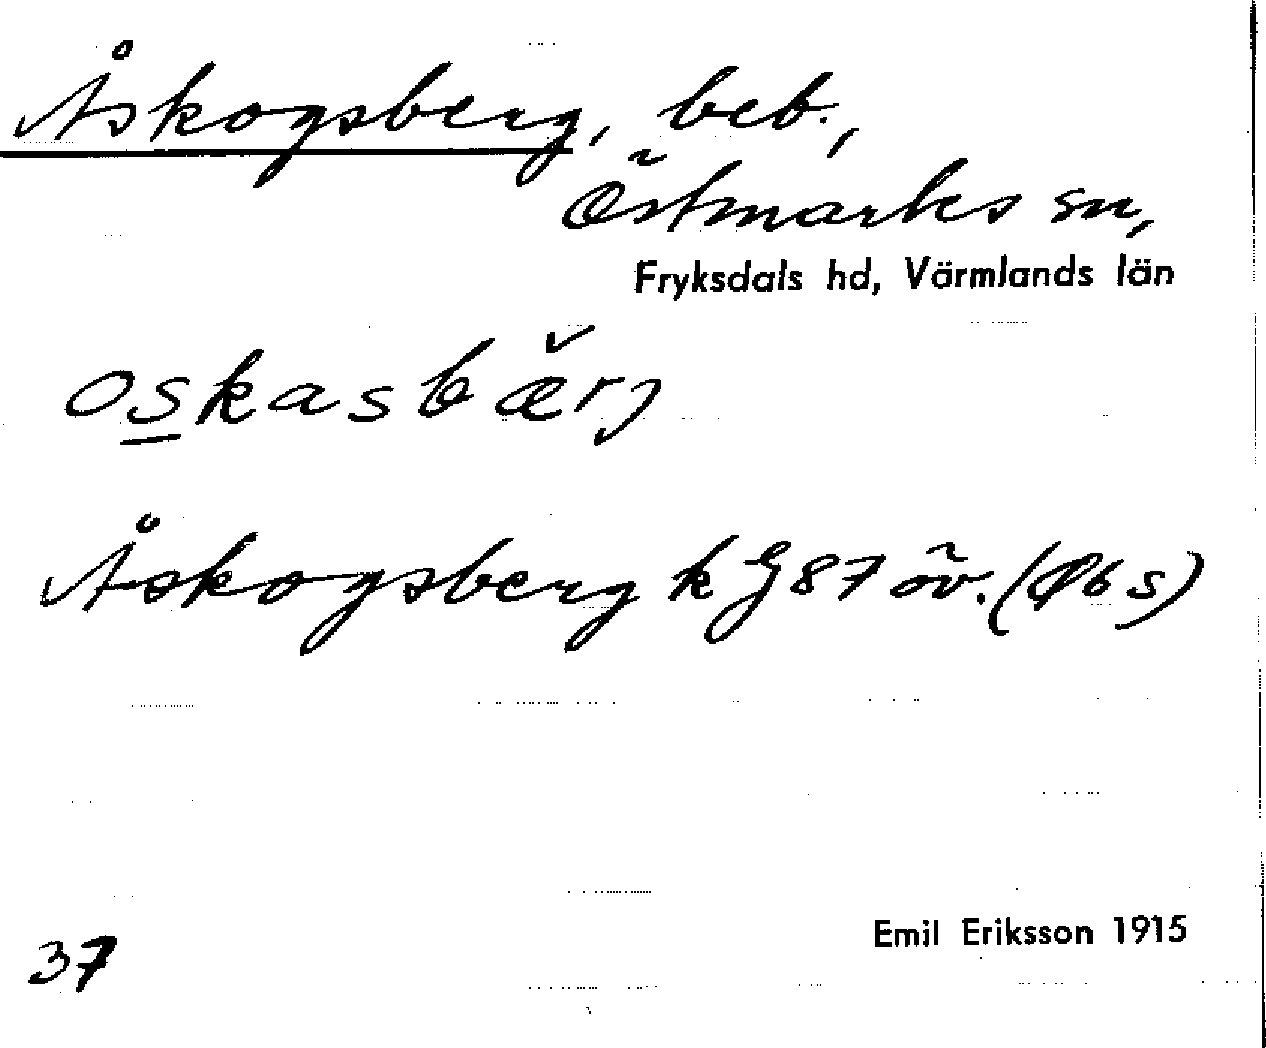 Åskogsberg, beb.,
Östmarks sn,
Fryksdals hd, Värmlands län
oskasbärj
Åskogsberg k G 87 öv. (Ø b s)
37
Emil Eriksson 1915